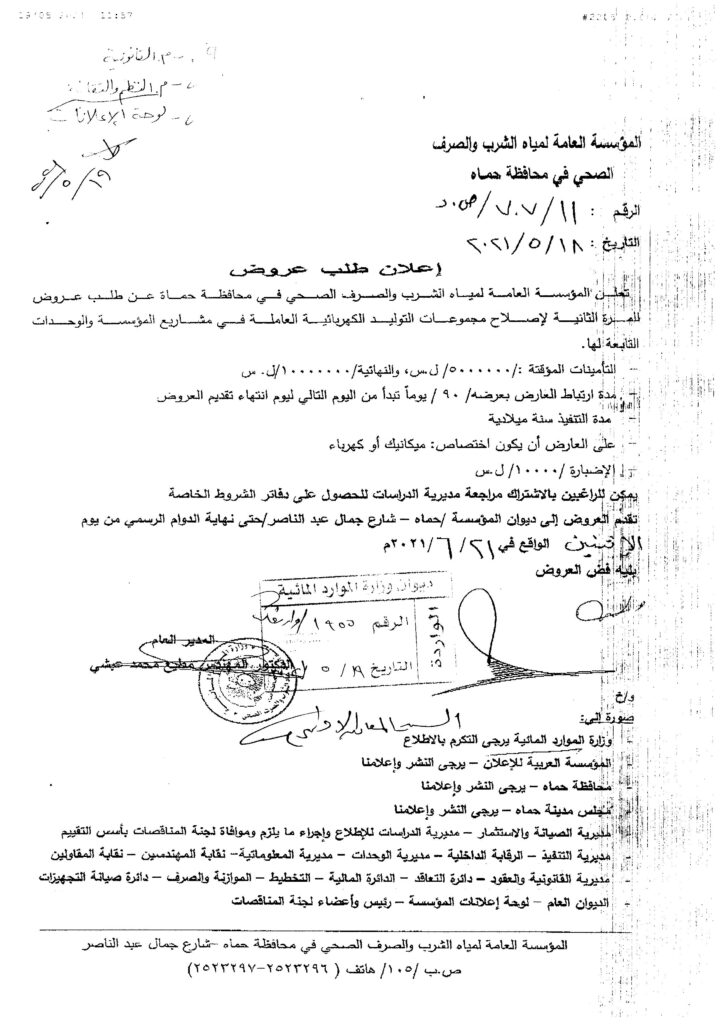 19/05 2021 11:57
م. القانونية
لوحة الإعلانات
١٩/٥
المؤسسة العامة لمياه الشرب والصرف
الصحي في محافظة حماه
الرقم : ٧٠٧/١١/ص.د
التاريخ : ٢٠٢١/٥/١٨
إعلان طلب عروض
تعلن المؤسسة العامة لمياه الشرب والصرف الصحي في محافظة حماة عن طلب عروض
للمرة الثانية لإصلاح مجموعات التوليد الكهربائية العاملة في مشاريع المؤسسة والوحدات
التابعة لها.
– التأمينات المؤقتة :/٥٠٠٠٠٠٠/ ل.س، والنهائية/١٠٠٠٠٠٠٠/ل. س
– مدة ارتباط العارض بعرضه/ ٩٠ / يوماً تبدأ من اليوم التالي ليوم انتهاء تقديم العروض
– مدة التنفيذ سنة ميلادية
– على العارض أن يكون اختصاص: ميكانيك أو كهرباء
الإضبارة /١٠٠٠٠/ ل.س
يمكن للراغبين بالاشتراك مراجعة مديرية الدراسات للحصول على دفاتر الشروط الخاصة
تقدم العروض إلى ديوان المؤسسة /حماه – شارع جمال عبد الناصر/حتى نهاية الدوام الرسمي من يوم
الإثنين الواقع في ٢٠٢١/٦/٢١م
يليه فض العروض
ديوان وزارة الموارد المائية
الواردة
الرقم ١٩٥٥
التاريخ ١٩/٥
المدير العام
الدكتور المهندس مطيع محمد عبشي
السيد المعاون
و/خ
صورة إلى:
– وزارة الموارد المائية يرجى التكرم بالاطلاع
– المؤسسة العربية للإعلان – يرجى النشر وإعلامنا
– محافظة حماه – يرجى النشر وإعلامنا
– مجلس مدينة حماه – يرجى النشر وإعلامنا
– مديرية الصيانة والاستثمار – مديرية الدراسات للإطلاع وإجراء ما يلزم وموافاة لجنة المناقصات بأسس التقييم
– مديرية التنفيذ – الرقابة الداخلية – مديرية الوحدات – مديرية المعلوماتية- نقابة المهندسين – نقابة المقاولين
– مديرية القانونية والعقود – دائرة التعاقد – الدائرة المالية – التخطيط – الموازنة والصرف – دائرة صيانة التجهيزات
– الديوان العام – لوحة إعلانات المؤسسة – رئيس وأعضاء لجنة المناقصات
المؤسسة العامة لمياه الشرب والصرف الصحي في محافظة حماه –شارع جمال عبد الناصر
ص.ب /١٠٥/ هاتف ( ٢٥٢٣٢٩٦-٢٥٢٣٢٩٧)